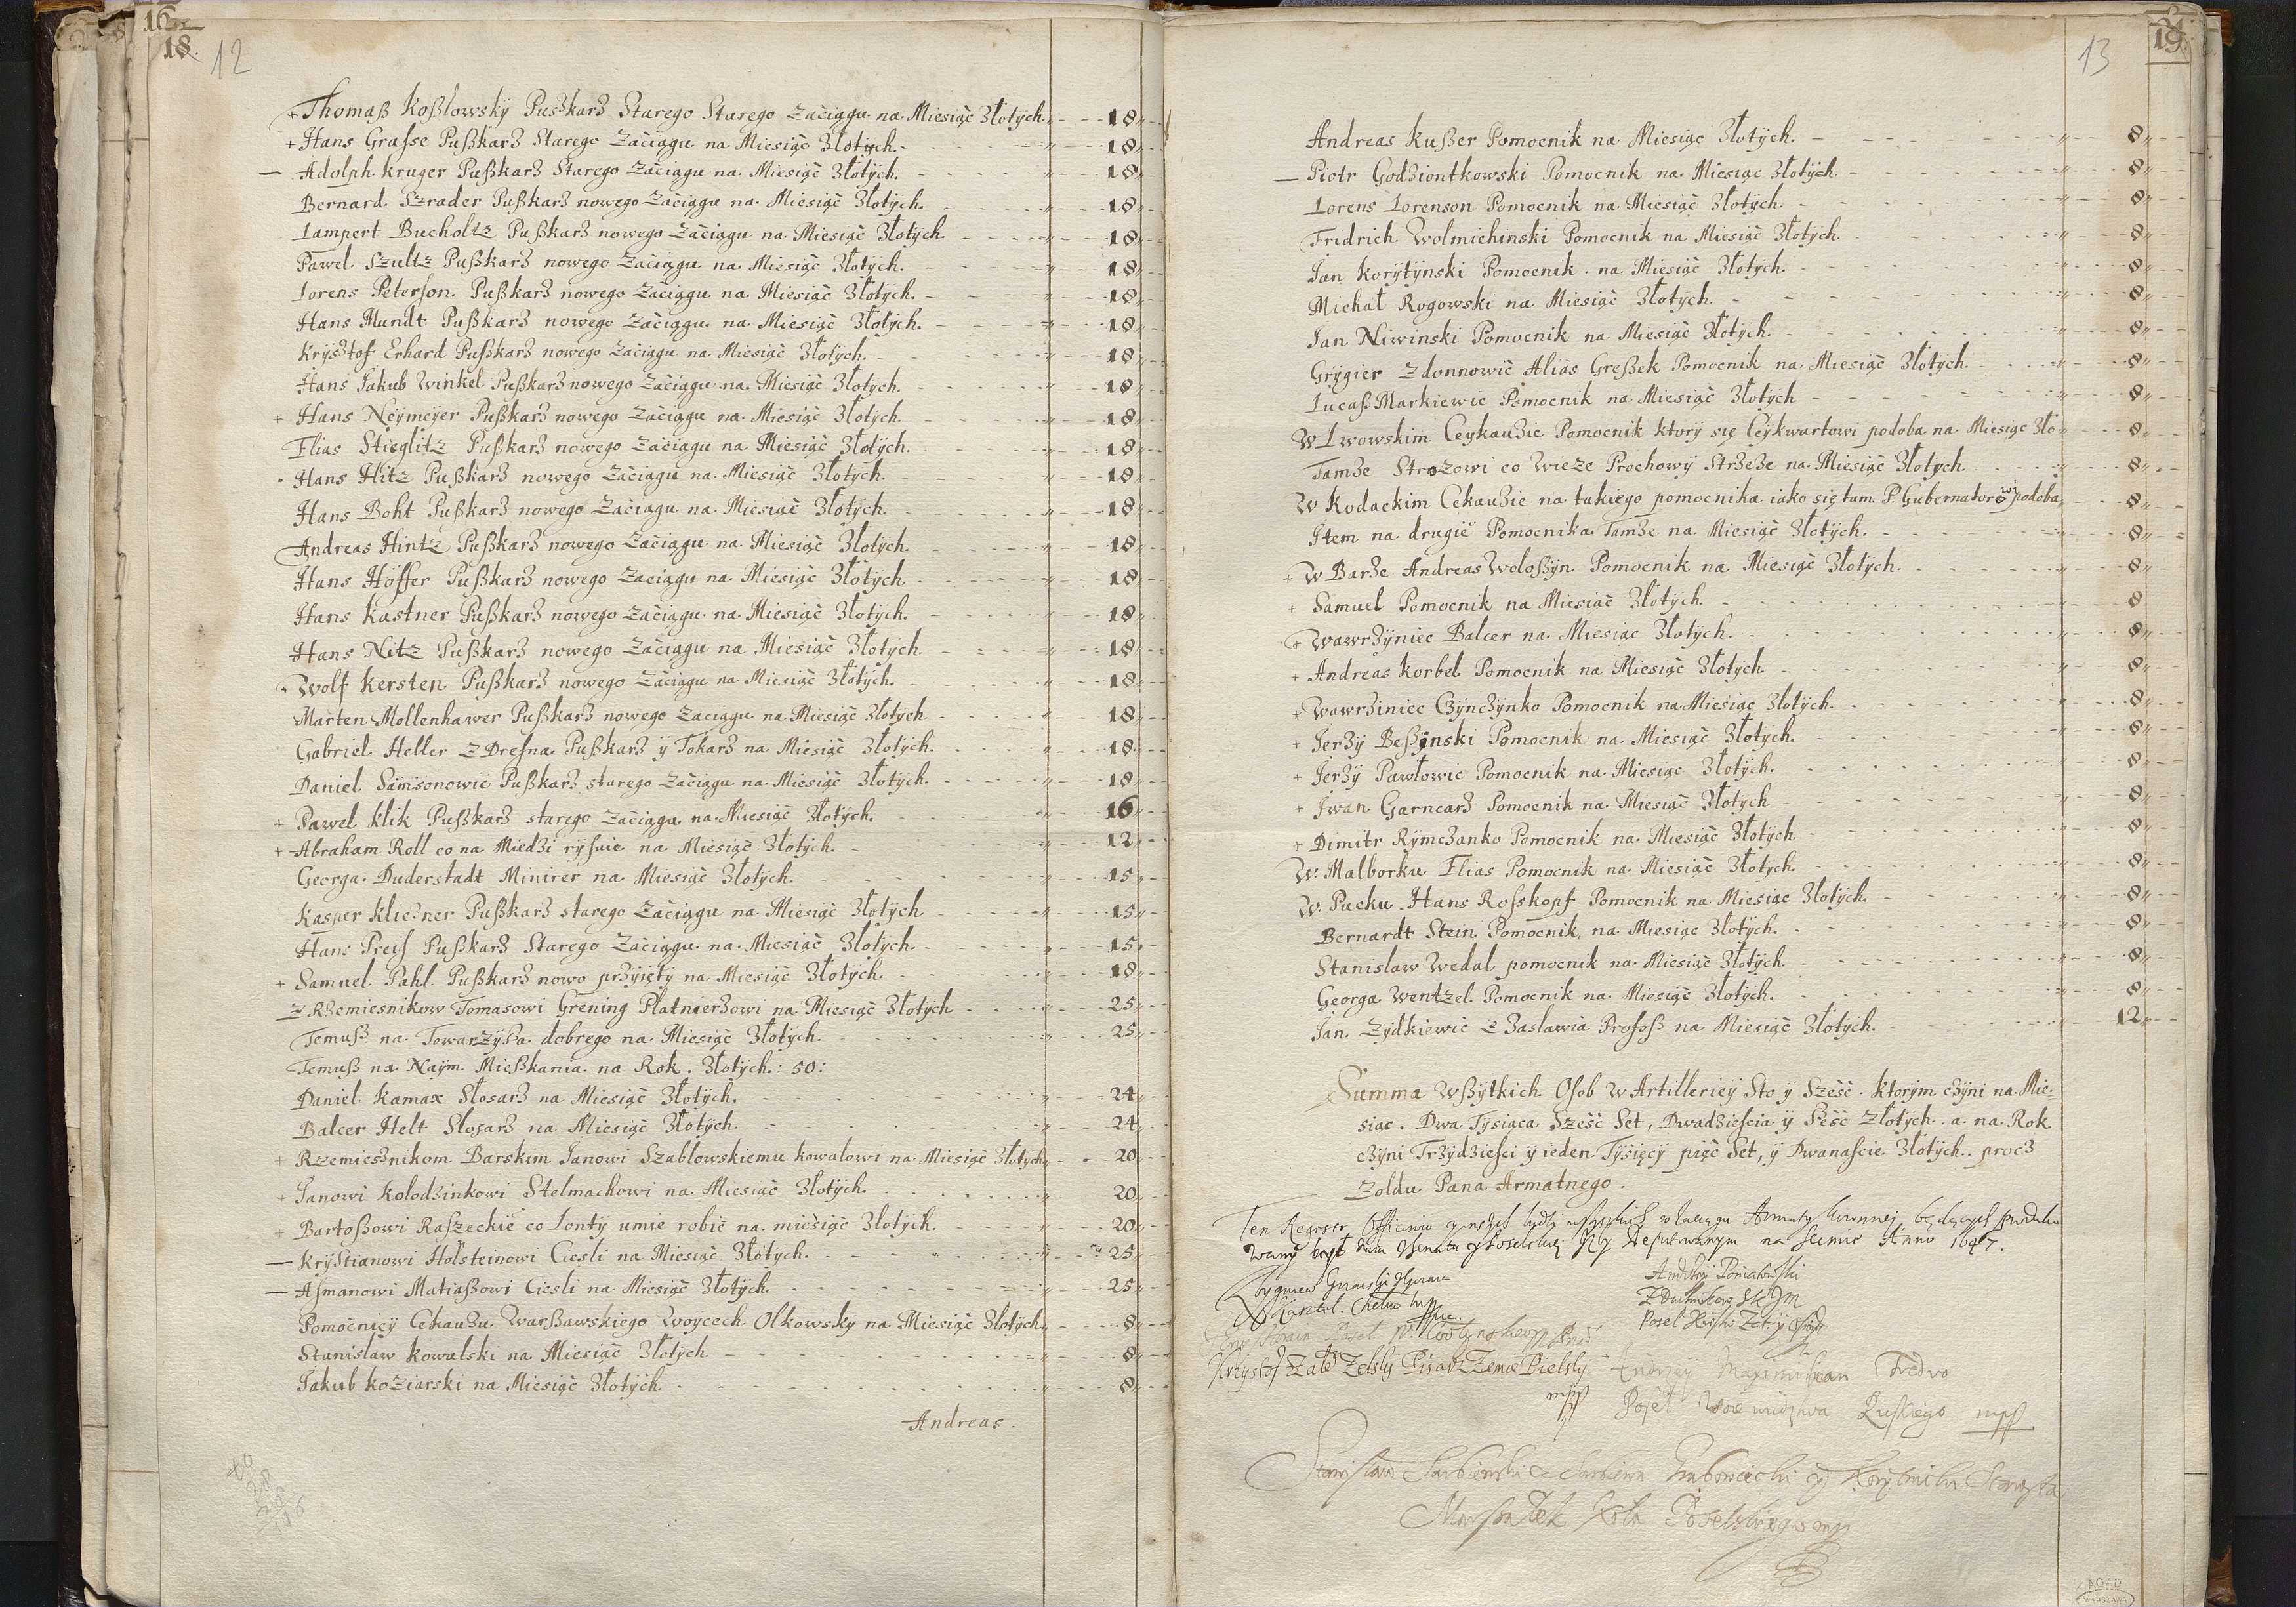 16
18.
12
+ Thomaß Koßłowskÿ Pußkarz Starego Starego Zaciągu na Miesiąc Złotÿch. 18
+ Hans Grasse Pußkarz Starego Zaciągu na Miesiąc Złotÿch. 18
— Adolph Kruger Pußkarz Starego Zaciągu na Miesiąc Złotÿch. 18
Bernard Szrader Pußkarz nowego Zaciągu na Miesiąc Złotÿch. 18
Lampert Bucholtz Pußkarz nowego Zaciągu na Miesiąc Złotÿch. 18
Pawel Szultz Pußkarz nowego Zaciągu na Miesiąc Złotÿch. 18
Lorens Peterson Pußkarz nowego Zaciągu na Miesiąc Złotÿch. 18
Hans Mundt Pußkarz nowego Zaciągu na Miesiąc Złotÿch. 18
Krÿsztof Erhard Pußkarz nowego Zaciągu na Miesiąc Złotÿch. 18
Hans Jakub Winkel Pußkarz nowego Zaciągu na Miesiąc Złotÿch. 18
+ Hans Neÿmeÿer Pußkarz nowego Zaciągu na Miesiąc Złotÿch. 18
Elias Stieglitz Pußkarz nowego Zaciągu na Miesiąc Złotÿch. 18
Hans Hitz Pußkarz nowego Zaciągu na Miesiąc Złotÿch. 18
Hans Boht Pußkarz nowego Zaciągu na Miesiąc Złotÿch. 18
Andreas Hintz Pußkarz nowego Zaciągu na Miesiąc Złotÿch. 18
Hans Höffer Pußkarz nowego Zaciągu na Miesiąc Złotÿch. 18
Hans Kastner Pußkarz nowego Zaciągu na Miesiąc Złotÿch. 18
Hans Nitz Pußkarz nowego Zaciągu na Miesiąc Złotÿch. 18
Wolf Kersten Pußkarz nowego Zaciągu na Miesiąc Złotÿch. 18
Marten Mollenhawer Pußkarz nowego Zaciągu na Miesiąc Złotÿch 18
Gabriel Heller z Dresna Pußkarz ÿ Tokarz na Miesiąc Złotÿch. 18
Daniel Samsonowic Pußkarz starego Zaciągu na Miesiąc Złotÿch. 18
+ Pawel Klik Pußkarz starego Zaciągu na Miesiąc Złotÿch. 16
+ Abraham Roll co na Miedzi rÿsuie na Miesiąc Złotÿch. 12
Georga Duderstadt Minirer na Miesiąc Złotÿch. 15
Kasper Kliczner Pußkarz starego Zaciągu na Miesiąc Złotÿch 15
Hans Preis Pußkarz Starego Zaciągu na Miesiąc Złotÿch. 15
+ Samuel Pahl Pußkarz nowo przÿiętÿ na Miesiąc Złotÿch. 18
Z Rzemiesnikow Tomasowi Grening Płatnerzowi na Miesiąc Złotÿch 25
Temuß na Towarzÿßa dobrego na Miesiąc Złotÿch. 25
Temuß na Naÿm Mießkania na Rok. Złotÿch.: 50:
Daniel Kamax Słosarz na Miesiąc Złotÿch. 24
Balcer Helt Slosarz na Miesiąc Złotÿch. 24
+ Rzemiesznikom Barskim Janowi Szablowskiemu kowalowi na Miesiąc Złotÿch 20
+ Janowi Kolodzinkowi Stelmachowi na Miesiąc Złotÿch. 20
+ Bartoßowi Raszeckic co Lontÿ umie robic na miesiąc Złotÿch. 20
— Krÿstianowi Holsteinowi Ciesli na Miesiąc Złotÿch. 25
— Asmanowi Matiaßowi Ciesli na Miesiąc Złotÿch. 25
Pomocnicÿ Cekauzu Warßawskiego Woÿcech Olkowskÿ na Miesiąc Złotÿch 8
Stanislaw Kowalski na Miesiąc Złotÿch. 8
Jakub Koziarski na Miesiąc Złotÿch. 8
Andreas.
13
19.
Andreas Kußer Pomocnik na Miesiąc Złotÿch. 8
— Piotr Godziontkowski Pomocnik na Miesiąc Złotÿch. 8
Lorens Lorenson Pomocnik na Miesiąc Złotÿch. 8
Fridrich Wolmichinski Pomocnik na Miesiąc Złotÿch. 8
Jan Korÿtÿnski Pomocnik na Miesiąc Złotÿch. 8
Michał Rogowski na Miesiąc Złotÿch. 8
Jan Niwinski Pomocnik na Miesiąc Złotÿch. 8
Grÿgier Zdonnowic Alias Greßek Pomocnik na Miesiąc Złotÿch. 8
Lucaß Markiewic Pomocnik na Miesiąc Złotÿch 8
W Lwowskim Ceykauzie Pomocnik ktorÿ się Ceÿkwartowi podoba na Miesiąc Zło 8
Tamze Strozowi co Wieze Prochowÿ Strzeze na Miesiąc Złotÿch 8
W Kodackim Cekauzie na takiego pomocnika iako się tam P. Gubernatorowi podoba 8
Item na drugic Pomocnika Tamze na Miesiąc Złotÿch. 8
+ W Barze Andreas Woloßÿn Pomocnik na Miesiąc Złotÿch. 8
+ Samuel Pomocnik na Miesiąc Złotÿch. 8
+ Wawrzÿniec Balcer na Miesiąc Złotÿch. 8
+ Andreas Korbel Pomocnik na Miesiąc Złotÿch. 8
+ Wawrziniec Czÿnczÿnko Pomocnik na Miesiąc Złotÿch. 8
+ Jerzÿ Beßinski Pomocnik na Miesiąc Złotÿch. 8
+ Jerzÿ Pawłowic Pomocnik na Miesiąc Złotÿch. 8
+ Iwan Garncarz Pomocnik na Miesiąc Złotÿch 8
+ Dimitr Rÿmczanko Pomocnik na Miesiąc Złotÿch 8
W. Malborku Elias Pomocnik na Miesiąc Złotÿch. 8
W. Pucku Hans Rosskopf Pomocnik na Miesiąc Złotÿch. 8
Bernardt Stein Pomocnik na Miesiąc Złotÿch. 8
Stanislaw Wedal pomocnik na Miesiąc Złotÿch. 8
Georga Wentzel Pomocnik na Miesiąc Złotÿch. 8
Jan Zÿdkiewic z Zaslawia Profoß na Miesiąc Złotÿch. 12
Summa Wßÿtkich Osob w Artillerieÿ Sto ÿ Szesc. ktorÿm czÿni na Mie-
siąc. Dwa Tÿsiąca Szesc Set, Dwadziescia ÿ Sesc Złotÿch. a na Rok
czÿni Trzÿdziesci ÿ ieden Tÿsięcÿ pięc Set, ÿ Dwanascie Złotÿch. procz
Zoldu Pana Armatnego.
Ten Regestr ludzi wszystkich Armaty będących
na Seimie Anno 1647.
Andrzej Poniatowski
Poseł
Krzysztof Pisarz Ziemie Bielskÿ
mpp
Andrzeÿ Maximilian Fredro
Poseł Woiewudztwa Ruskiego mpp
Stanisław Sarbiewski Grabowiecki Starosta
Marszałek Koła Poselskiego mpp
AGAD
WARSZAWA